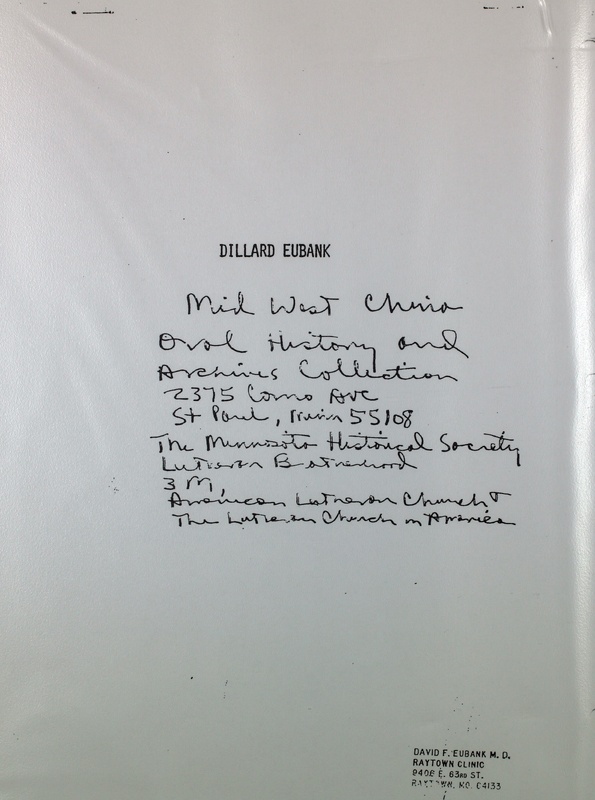 DILLARD EUBANK
Mid West China
Oral History and
Archives Collection
2375 Como Ave
St Paul, Minn 55108
The Minnesota Historical Society
Lutheran Brotherhood
3 M,
American Lutheran Church &
The Lutheran Church in America
DAVID F. EUBANK M. D.
RAYTOWN CLINIC
9406 E. 63RD ST.
RAYTOWN, MO. 64133